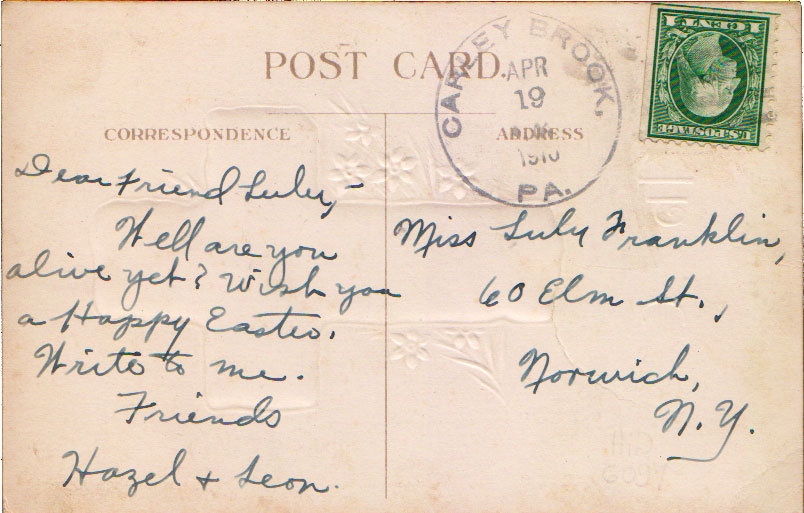 POST CARD.
CARLEY BROOK,
APR
19
PA.
1 CENT 1
U.S. POSTAGE
CORRESPONDENCE
Dear Friend Luly,-
Well are you
alive yet? Wish you
a Happy Easter.
Write to me.
Friends
Hazel + Leon.
ADDRESS
Miss Luly Franklin,
60 Elm St.,
Norwich,
N.Y.